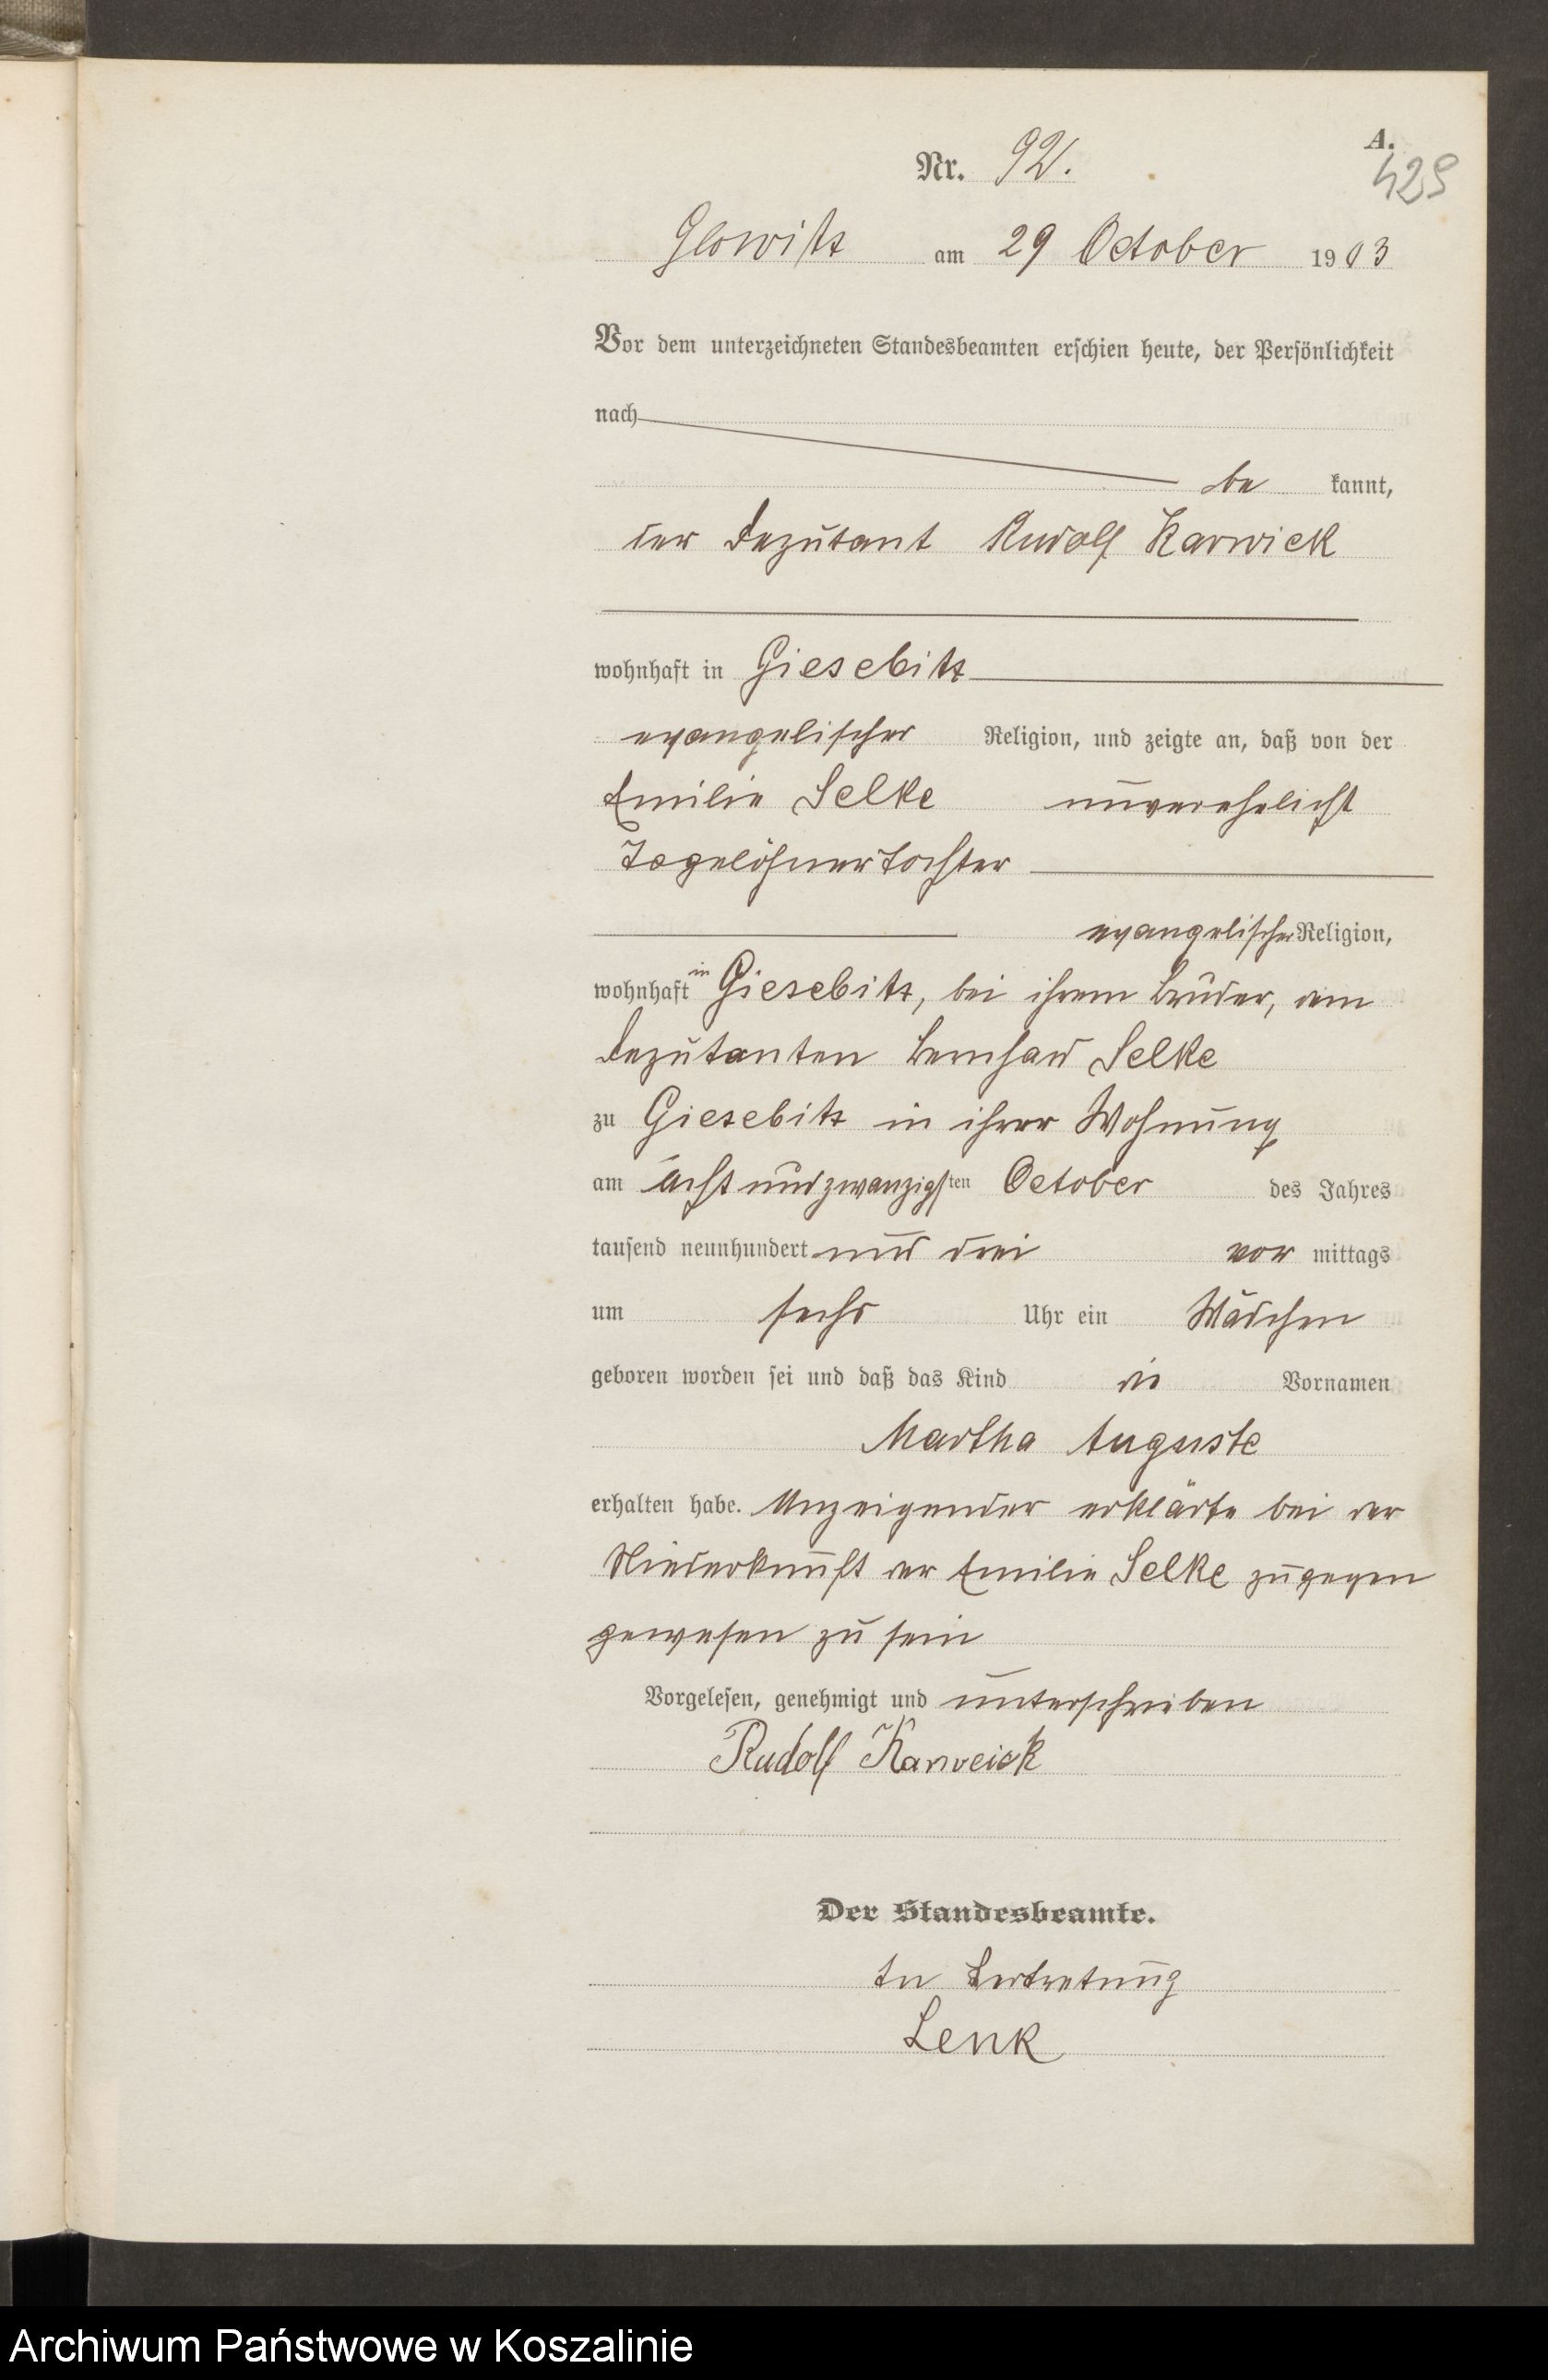 A.
Nr. 92.
429
Glowitz am 29 October 1903
Vor dem unterzeichneten Standesbeamten erschien heute, der Persönlichkeit
nach
be kannt,
der Deputant Rudolf Karwick
wohnhaft in Giesebitz
evangelischer Religion, und zeigte an, daß von der
Emilie Selke unverehelicht
Tagelöhnertochter
evangelischer Religion,
wohnhaft in Giesebitz, bei ihrem Bruder, dem
Deputanten Bernhard Selke
zu Giesebitz in ihrer Wohnung
am acht und zwanzigsten October des Jahres
tausend neunhundert und drei vor mittags
um sechs Uhr ein Mädchen
geboren worden sei und daß das Kind die Vornamen
Martha Auguste
erhalten habe. Anzeigender erklärte bei der
Niederkunft der Emilie Selke zugegen
gewesen zu sein
Vorgelesen, genehmigt und unterschrieben
Rudolf Karweick
Der Standesbeamte.
In Vertretung
Lenk
Archiwum Państwowe w Koszalinie